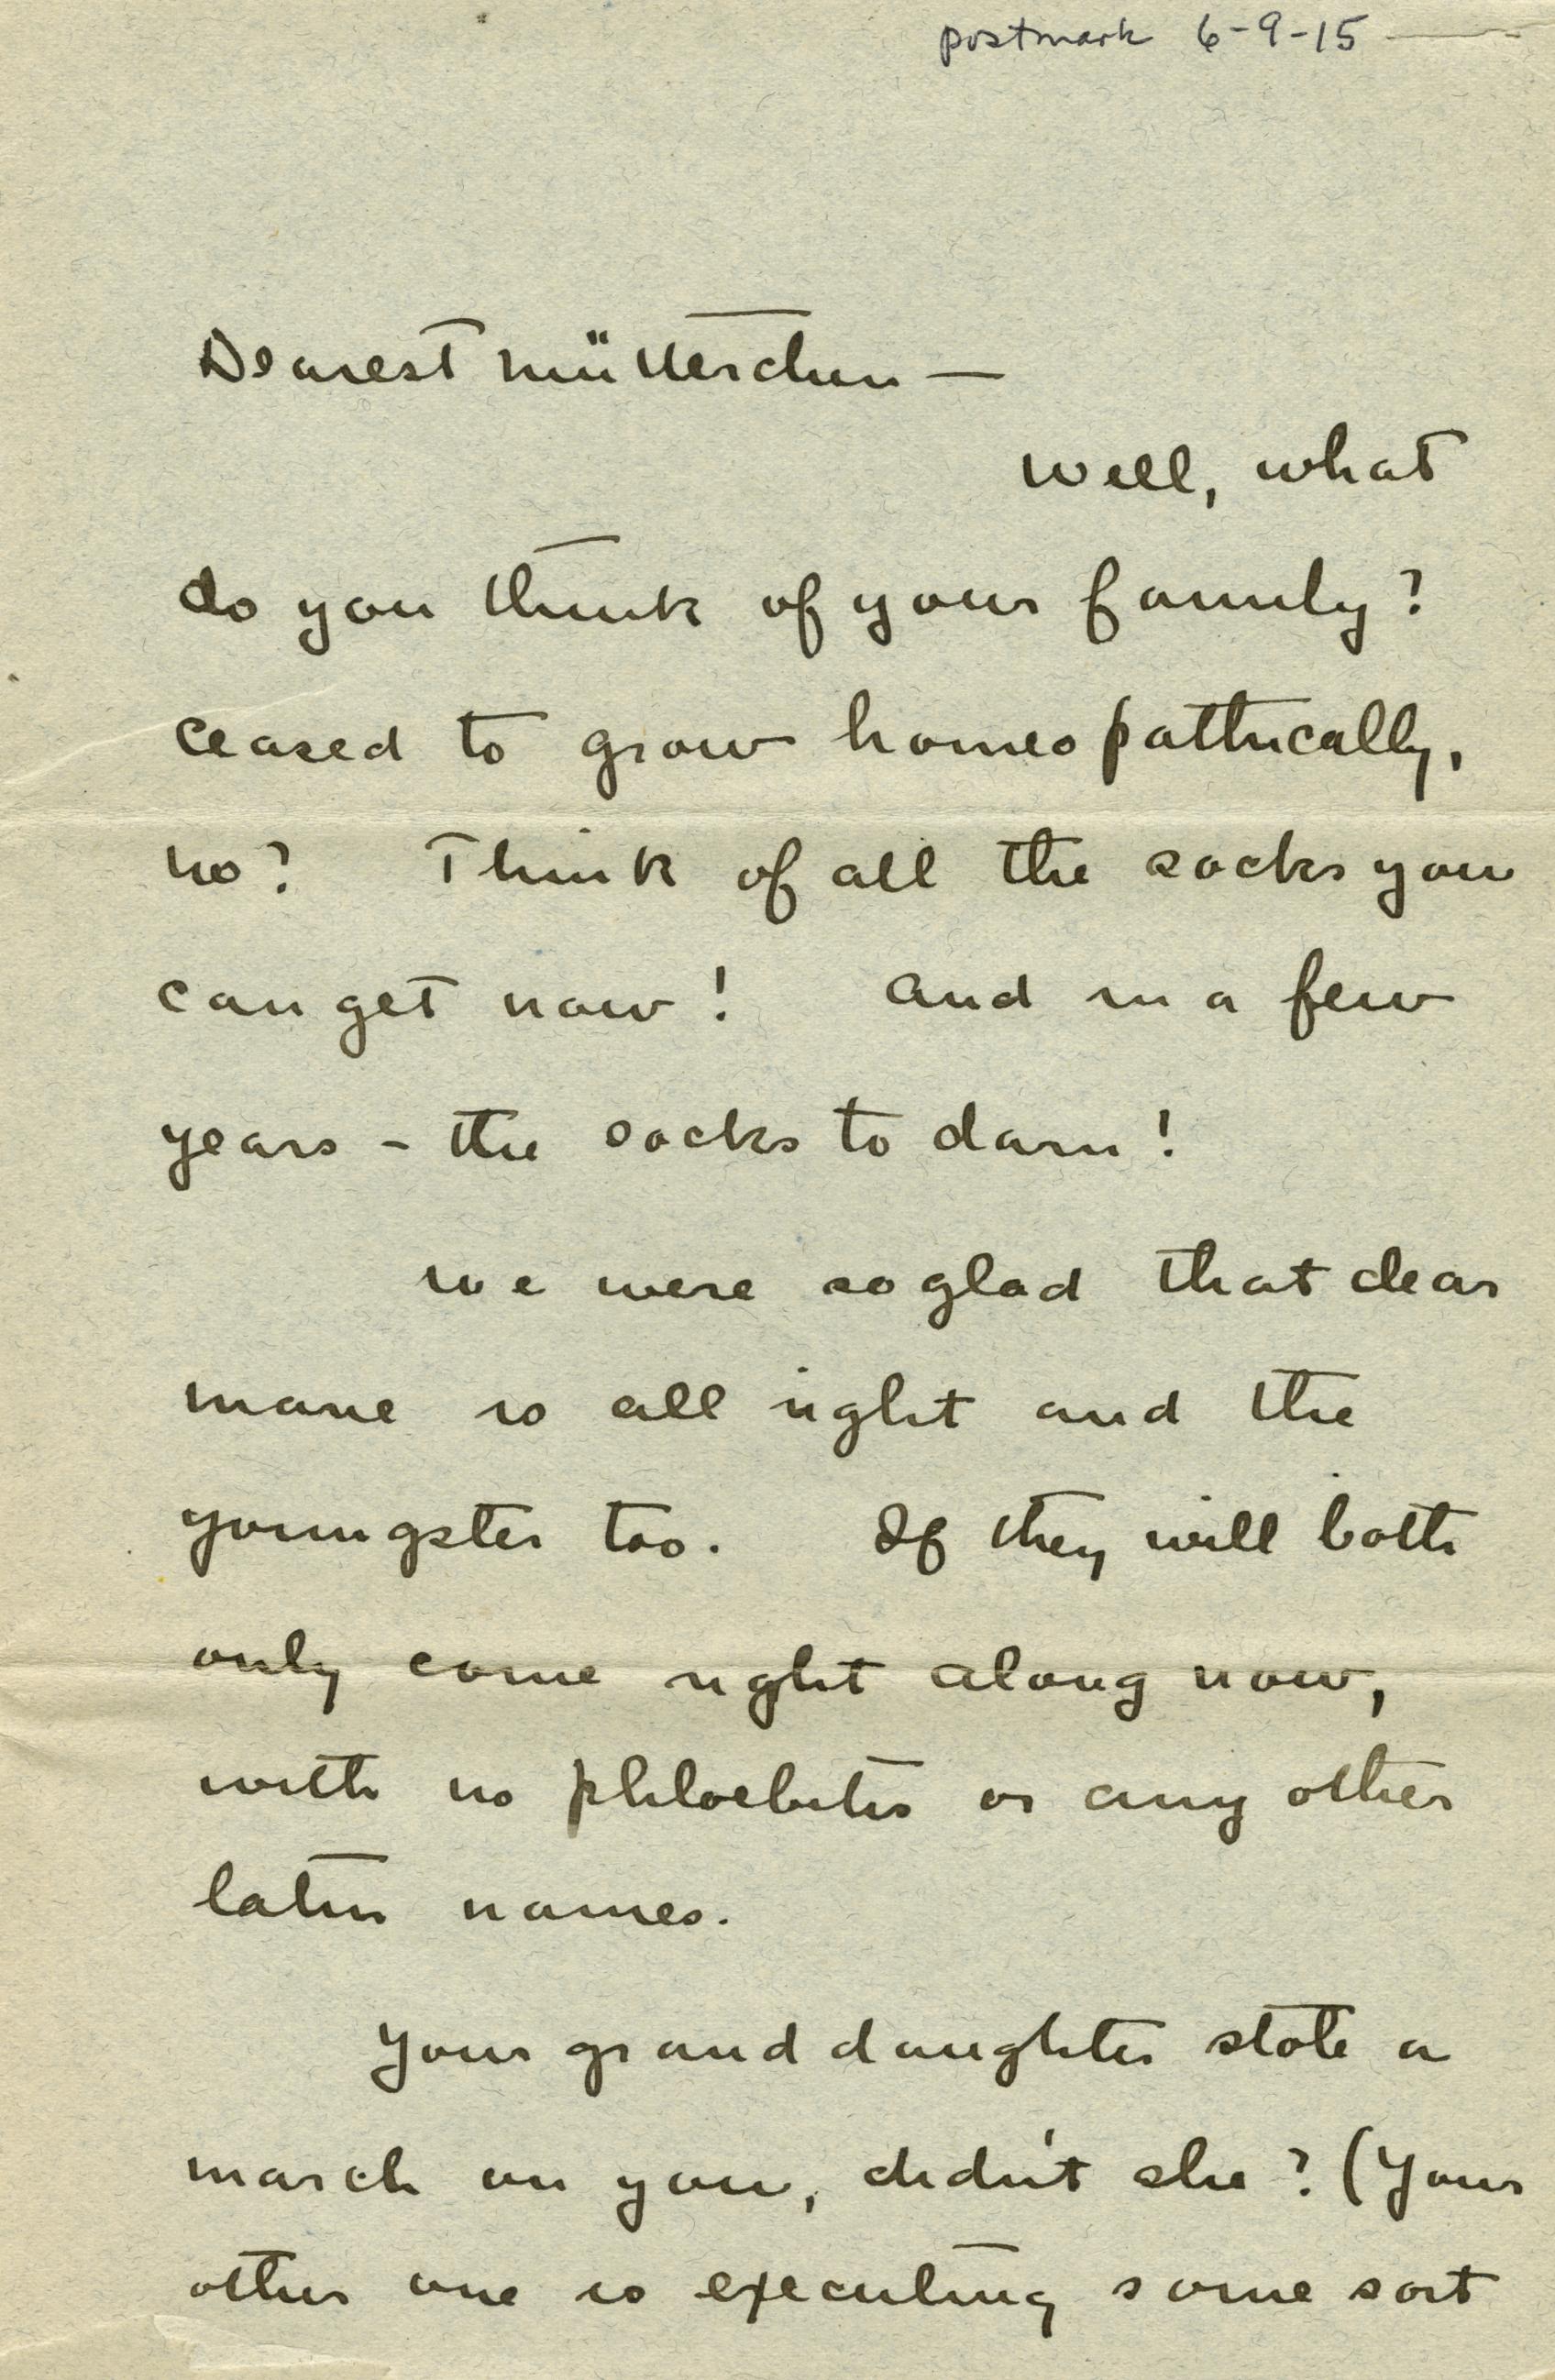 postmark 6-9-15
Dearest Mütterchen —
Well, what
do you think of your family?
Ceased to grow homeopathically,
no? Think of all the socks you
can get now! And in a few
years - the socks to darn!
We were so glad that dear
Marie is all right and the
youngster too. If they will both
only come right along now,
with no phloebitis or any other
latin names.
Your granddaughter stole a
march on you, didn't she? (Your
other one is executing some sort